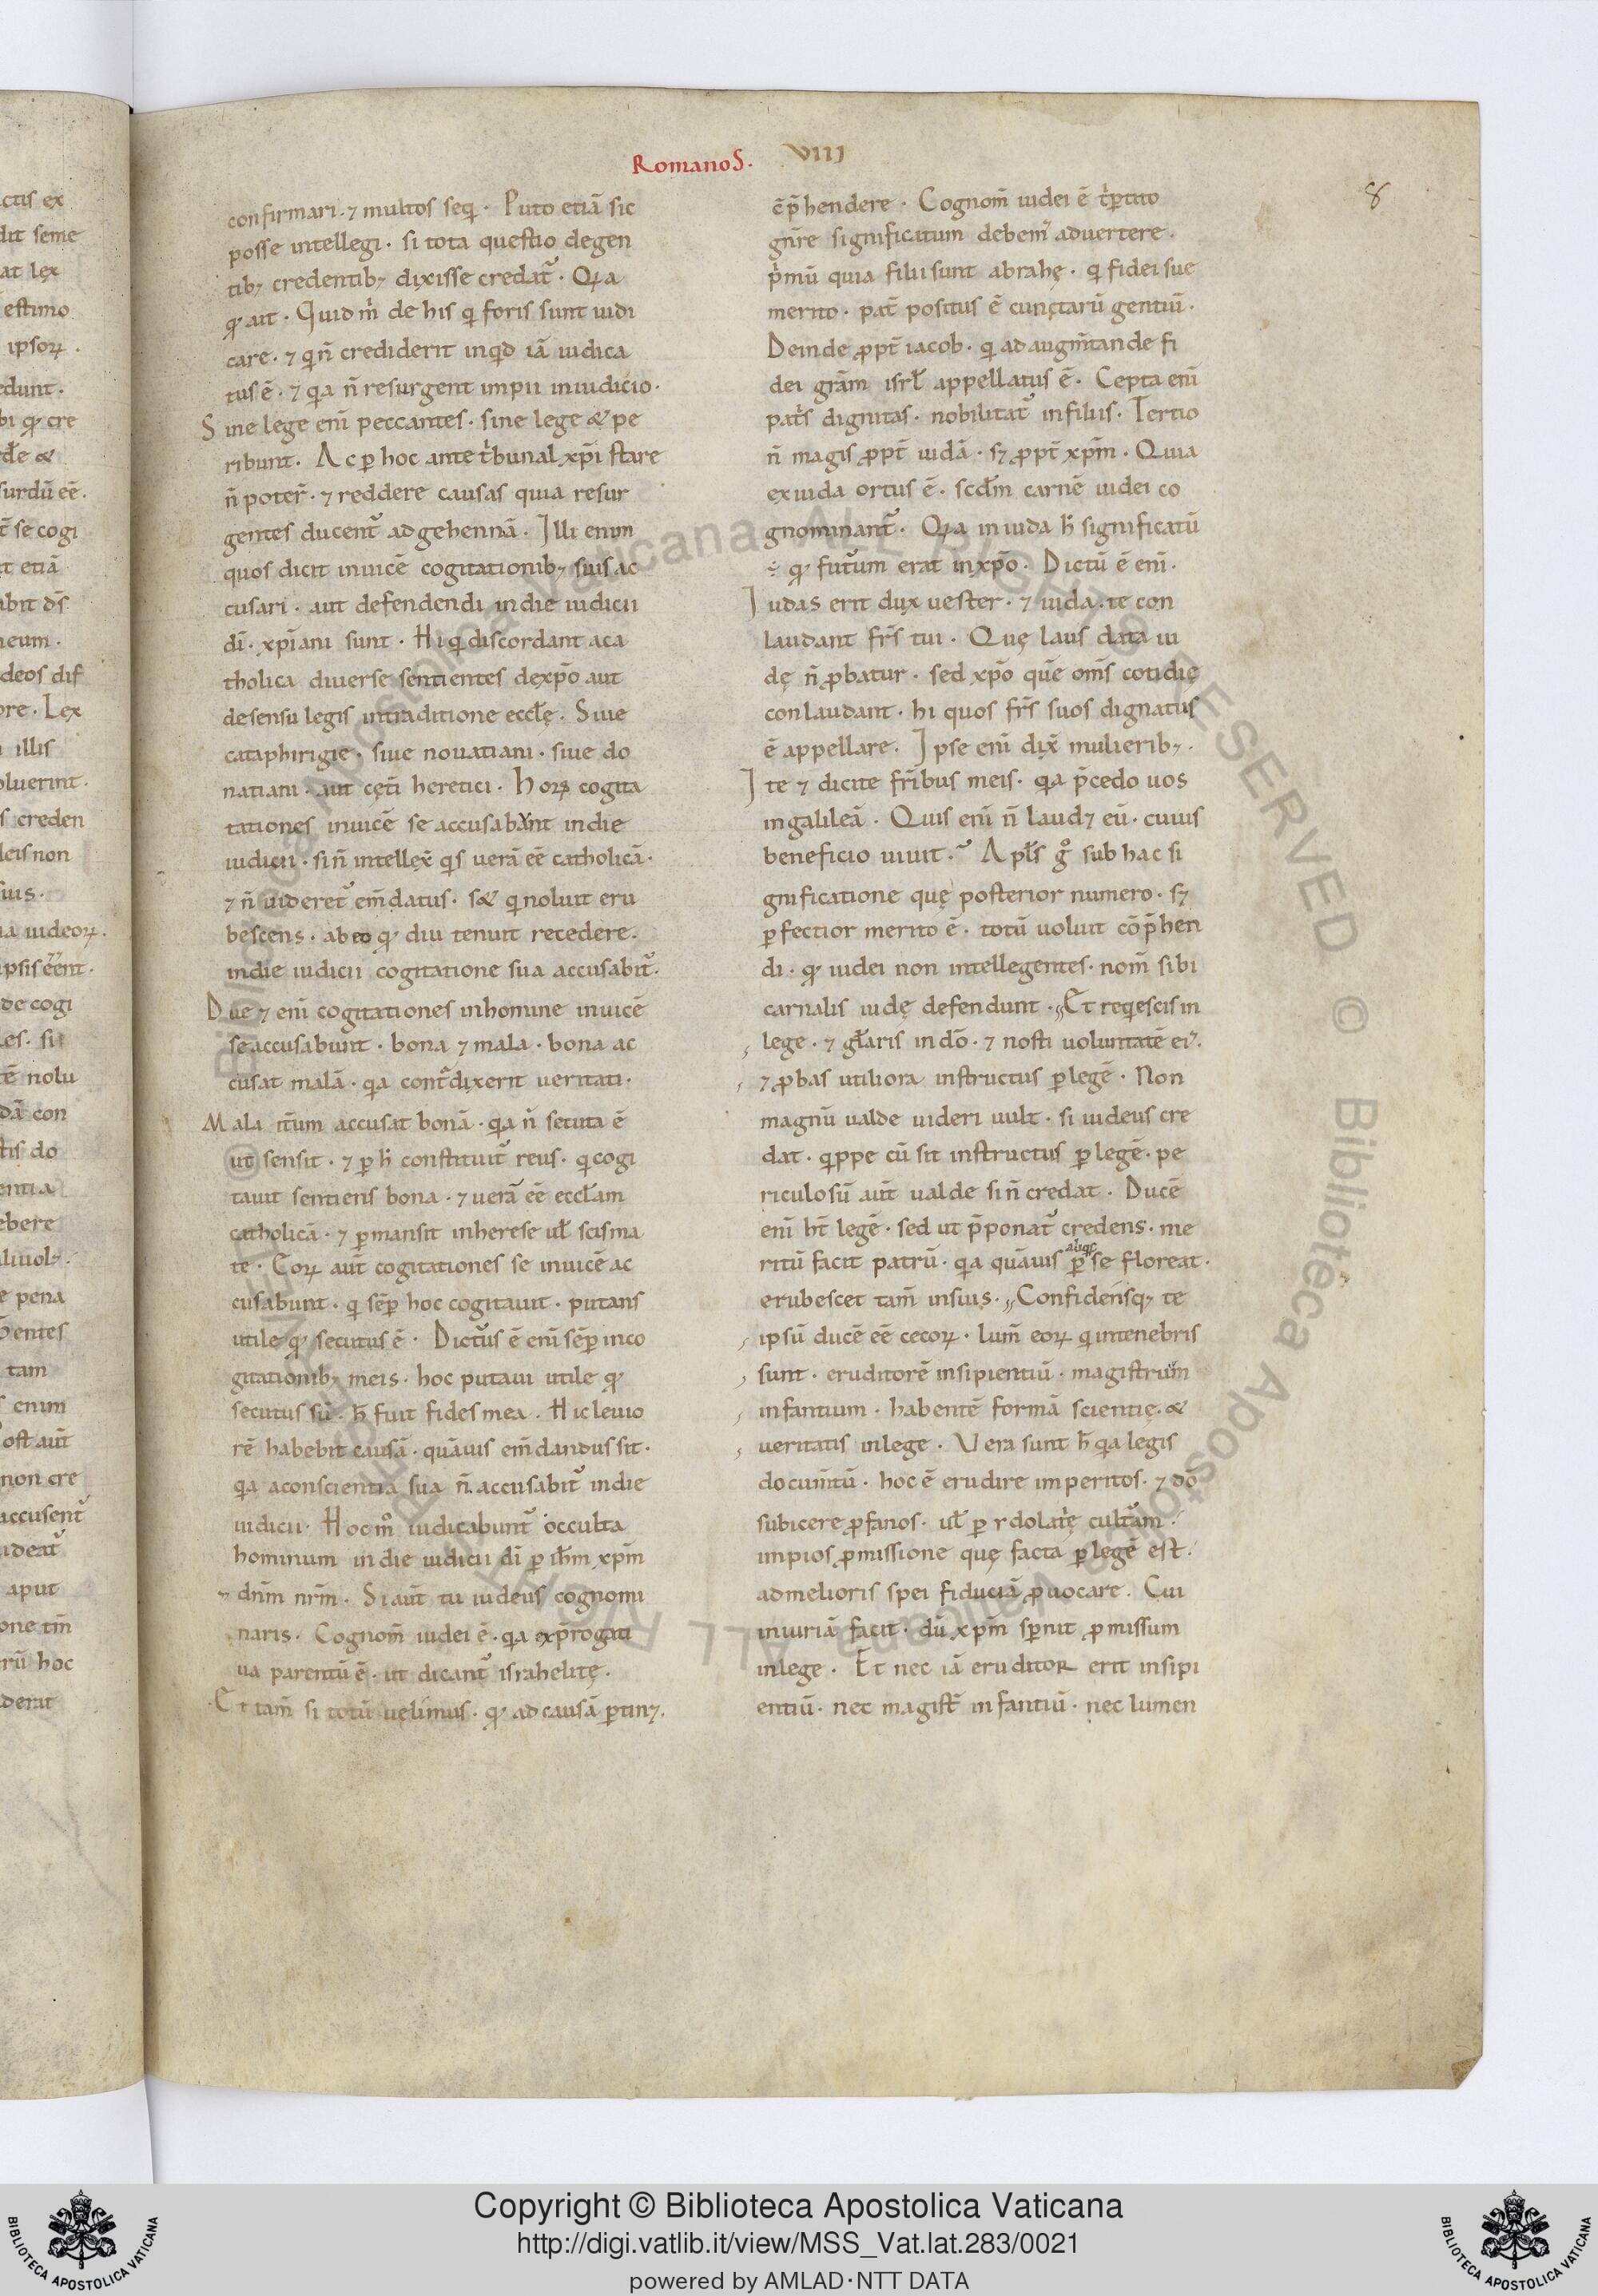 Romanos. VIII
8
confirmari · ⁊ multos seq̅ · Puto etiā sic
posse intellegi · si tota questio de gen
tib; credentib; dixisse credat᷑ · Qꝛa
qꝫ ait · Quid m̅ de his qi foris sunt iudi
care · ⁊ qi n̅ crediderit inqd iā iudica
tus ē · ⁊ qa n̅ resurgent impii in iudicio ·
Sine lege eni̅ peccantes · sine lege & pe
ribunt · Ac ꝑ hoc ante tͥbunal xp̅i stare
n̅ poter̅ · ⁊ reddere causas quia resur
gentes ducent᷑ ad gehennā · Illi enim
quos dicit inuicē cogitationib; suis ac
cusari · aut defendendi in die iudicii
di̅ · xp̅iani sunt · Hi qi discordant a ca
tholica diuerse sentientes de xp̅o aut
de sensu legis in traditione eccl̅ę · Siue
cataphirigie · siue nouatiani · siue do
natiani · aut cęti̅ heretici · Hoꝝ cogita
tationes inuicē se accusabunt in die
iudicii · si n̅ intellex̅ qis uerā eē catholicā ·
⁊ n̅ uideret᷑ em̅datus · s& qi noluit eru
bescens · ab eo qꝫ diu tenuit recedere ·
in die iudicii cogitatione sua accusabit᷑ ·
Due ⁊ eni̅ cogitationes in homine inuicē
se accusabunt · bona ⁊ mala · bona ac
cusat malā · qa contͣdixerit ueritati ·
Mala it̅um accusat bonā · qa n̅ secuta ē
ut sensit · ⁊ ꝑ h̅ constituit᷑ reus · qi cogi
tauit sentiens bona · ⁊ uerā eē eccl̅am
catholicā · ⁊ ꝑmansit in herese ul̅ scisma
te · Eoꝝ aut̅ cogitationes se inuicē ac
cusabunt · qi sēꝑ hoc cogitauit · putans
utile qꝫ secutus ē · Dicturus ē eni̅ sēꝑ in co
gitationib; meis · hoc putaui utile qꝫ
secutus su̅ · h̅ fuit fides mea · Hic leuio
rē habebit causā · quāuis em̅dandus sit ·
qa a conscientia sua n̅ accusabit᷑ in die
iudicii · Hoc mͦ iudicabunt᷑ occulta
hominum in die iudicii di̅ ꝑ ih̅m xp̅m
dn̅m nr̅m · Si aut̅ tu iudeus cognomi
naris · Cognom̅ iudei ē · qa ex p̅rogati
ua parentū ē · ut dicant᷑ israhelitę ·
Et tam̅ si totū uelimus · qꝫ ad causā ꝑtin; ·
c̅p̅hendere · Cognom̅ iudei ē tͥꝑtito
gn̅re significatum debem᷑ aduertere ·
pͥmū quia filii sunt abrahę · qi fidei sue
merito · pat̅ positus ē cunctarū gentiū ·
Deinde ꝓpt̅ iacob · qi ad augm̅tan de fi
dei grām isrl̅ appellatus ē · Cepta eni̅
patͥs dignitas · nobilitat᷑ in filiis · Tertio
n̅ magis ꝓpt̅ iudā · s; ꝓpt̅ xp̅m · Quia
ex iuda ortus ē · scd̅m carnē iudei co
gnominant᷑ · Qꝛa in iuda h̅ significatū
÷ qꝫ futurum erat in xp̅o · Dictū ē eni̅ ·
Iudas erit dux uester · ⁊ iuda · te con
laudant fr̅s tui · Quę laus data iu
dę n̅ ꝓbatur · sed xp̅o que̅ om̅s cotidię
conlaudant · hi quos fr̅s suos dignatus
ē appellare · Ipse eni̅ dix̅ mulierib; ·
Ite ⁊ dicite fr̅ibus meis · qa p̅cedo uos
in galileā · Quis eni̅ n̅ laud; eū · cuius
beneficio uiuit ·᷑ Apl̅s gͦ sub hac si
gnificatione quę posterior numero · s;
ꝑfectior merito ē · totū uoluit cōp̅hen
di · qꝫ iudei non intellegentes · nom̅ sibi
carnalis iudę defendunt · Et reqiescis in
lege · ⁊ gl̅aris in dō · ⁊ nosti uoluntatē ei᷒ ·
⁊ ꝓbas utiliora instructus ꝑ legē · Non
magnū ualde uideri uult · si iudeus cre
dat · qippe cū sit instructus ꝑ legē · pe
riculosū aut̅ ualde si n̅ credat · Ducē
eni̅ ht̅ legē · sed ut p̅ponat᷑ credens · me
ritū facit patrū · qa quāuis ꝑ se floreat ·
erubescet tam̅ in suis · Confidensq; te
ipsū ducē eē cecoꝝ · lum̅ eoꝝ qi in tenebris
sunt · eruditorē insipientiū · magistrum
infantium · habentē formā scientię · &
ueritatis in lege · Vera sunt h̅ qa legis
docum̅tū · hoc ē erudire imperitos · ⁊ dō
subicere ꝓfanos · ul̅ ꝑ ydolatͥę cultͣam ·
impios ꝓmissione quę facta ꝑ legē est ·
ad melioris spei fiduciā ꝓuocare · Cui
iniuriā facit · dū xp̅m sꝑnit ꝓmissum
in lege · Et nec iā eruditor erit insipi
entiū · nec magist̅ infantiū · nec lumen
Copyright © Biblioteca Apostolica Vaticana
http://digi.vatlib.it/view/MSS_Vat.lat.283/0021
powered by AMLAD·NTT DATA
BIBLIOTECA APOSTOLICA VATICANA
BIBLIOTECA APOSTOLICA VATICANA